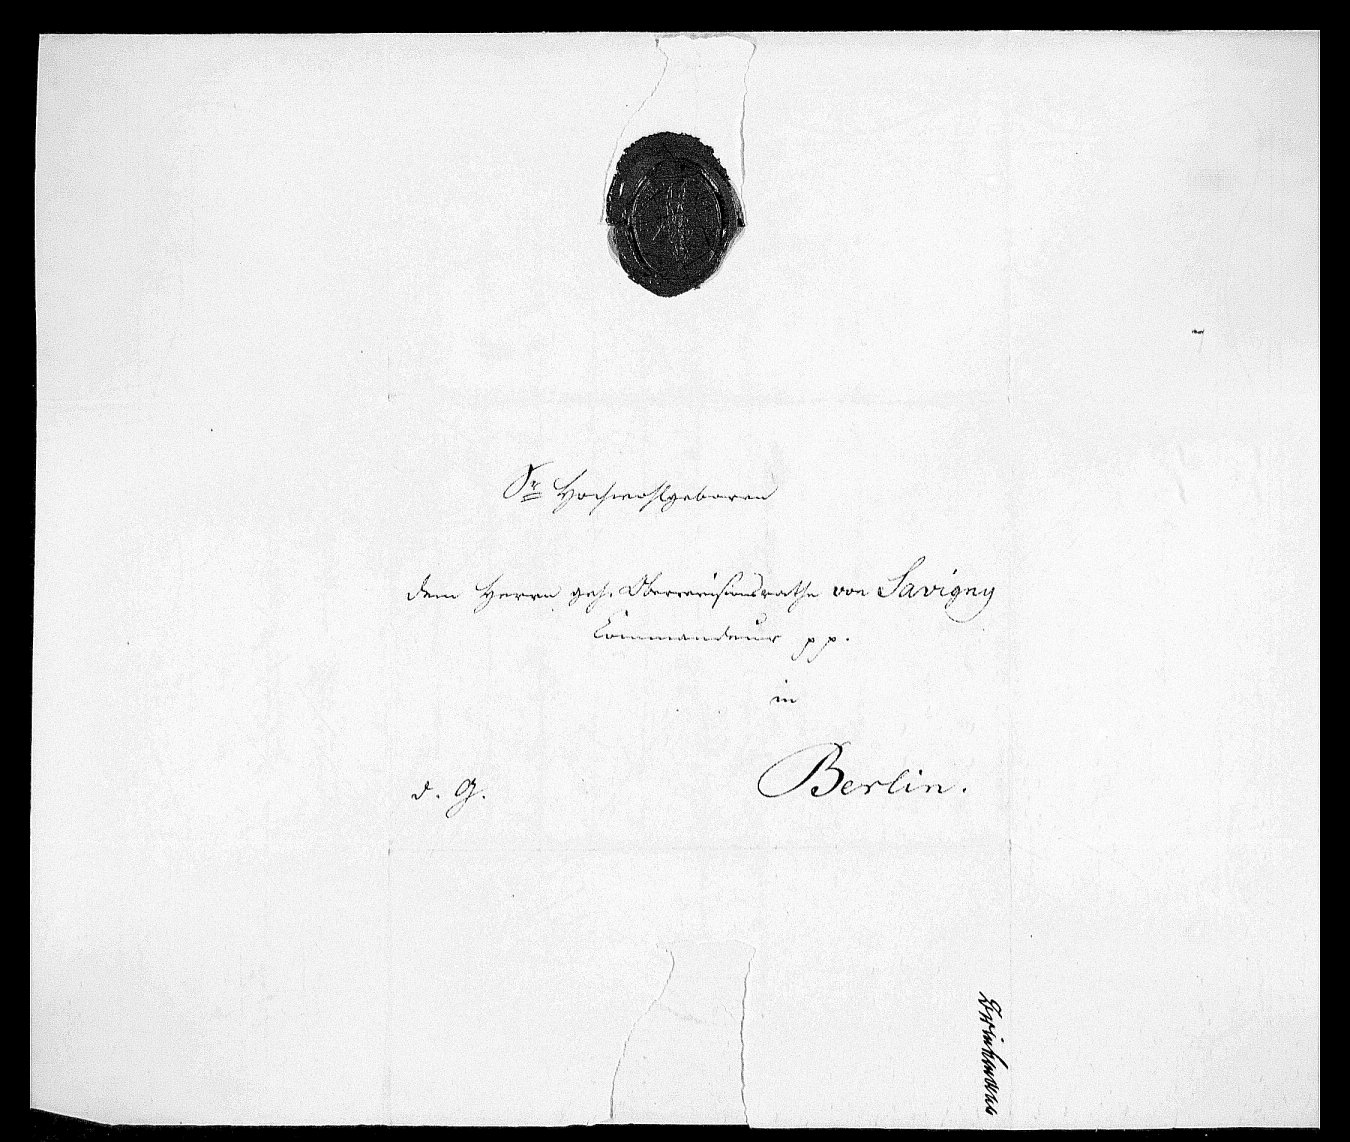 Sr Hochwohlgeboren
dem Herrn geh. Oberrevisionsrathe von Savigny
Commandeur pp.
in
Berlin.
d. G.